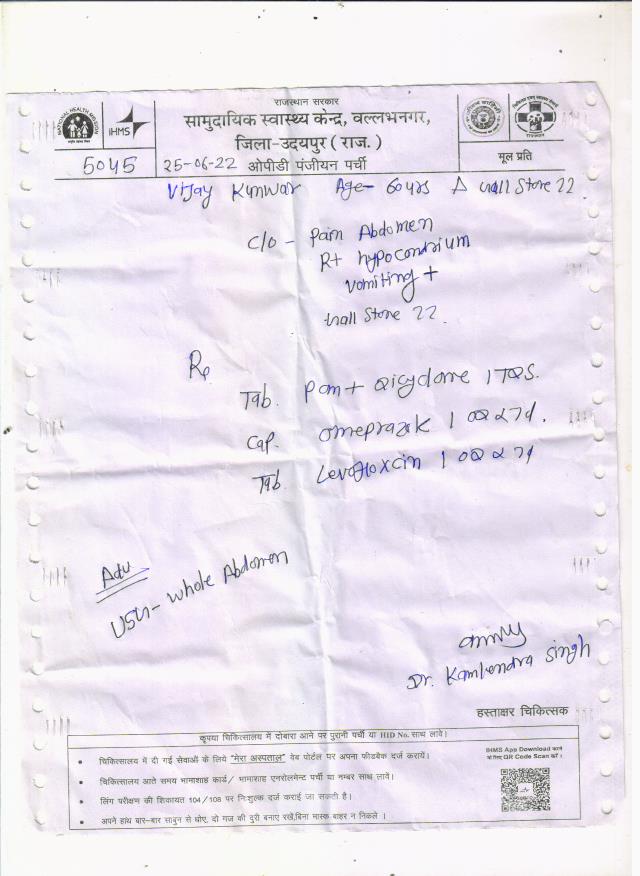 राजस्थान सरकार
सामुदायिक स्वास्थ्य केन्द्र, वल्लभनगर,
जिला-उदयपुर ( राज. )
NATIONAL HEALTH MISSION
IHMS
मूल प्रति
5045 25-06-22 ओपीडी पंजीयन पर्ची
Vijay Kunwar Age- 60 yrs Δ Gall Stone ??
C/o - Pain Abdomen
Rt hypocondrium
vomiting +
Gall Stone ??
Rp
Tab. Pan + Dicyclome 1 TDS.
Cap. omeprazole 1 OD x 7d.
Tab. Levofloxcin 1 OD x 7d
Adv
USG- Whole Abdomen
Dr. Kamlendra Singh
हस्ताक्षर चिकित्सक
कृपया चिकित्सालय में दोबारा आने पर पुरानी पर्ची या HID No. साथ लावें।
• चिकित्सालय में दी गई सेवाओं के लिये "मेरा अस्पताल" वेब पोर्टल पर अपना फीडबैक दर्ज करायें।
• चिकित्सालय आते समय भामाशाह कार्ड / भामाशाह एनरोलमेण्ट पर्ची या नम्बर साथ लावें।
• लिंग परीक्षण की शिकायत 104/108 पर निःशुल्क दर्ज कराई जा सकती है।
• अपने हाथ बार-बार साबुन से धोए, दो गज की दुरी बनाए रखें,बिना मास्क बाहर न निकले ।
IHMS App Download करने
के लिए QR Code Scan करें।